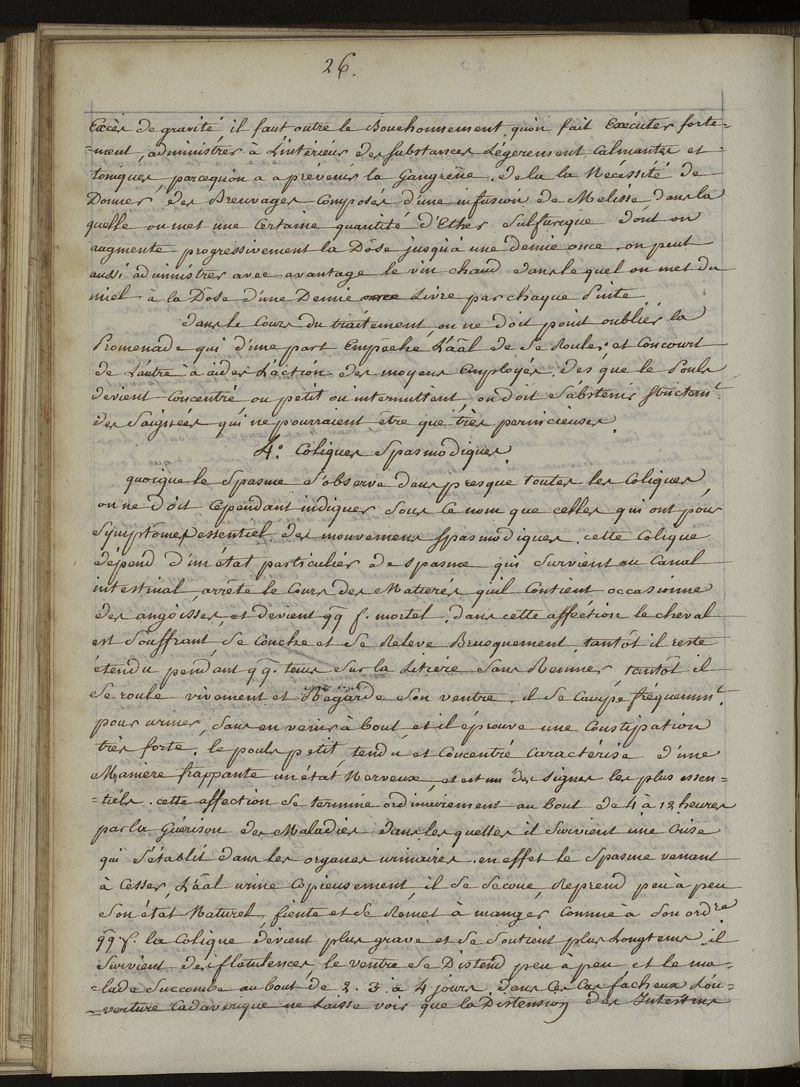 26.
Excès de gravité, il faut outre le Bouchonnement, qu'on fait Exécuter forte=
=ment, administrer à L'intérieur des substances Légèrement Calmantes et
toniques, parcequ'on a a prévenir la Gangrêne. de la la Nécessité de
Donner des Breuvages Composés d'une infusion de Melisse, dans la
quelle on met une Certaine quantité d'Ether Sulfurique dont on
augmente progressivement la Dôse jusqu'à une demie once, on peut
aussi administrer avec avantage le vin chaud dans le quel on met du
miel à la Dôse d'une Demie Livre par chaque Pinte.
Dans le Cours du traitement, on ne doit point oublier la
Promenade qui d'une part Empêche L'aâl de Se Rouler, et Concourt
de L'autre à aider L'action des moyens Employés. Dès que le Pouls
devient Concentré ou petit ou intermittent, on doit S'abstenir strictemt.
des Saignées qui ne pourraient être que très pernicieuses.
4.° Coliques Spasmodiques.
quoique le Spasme S'observe dans presque toutes les Coliques,
on ne doit Cependant indiquer Sous Ce nom que celles qui ont pour
Symptômes essentiel des mouvemens Spasmodiques. cette Colique
dépend d'un état particulier de spasme qui Survient au Canal
intestinal, arrête le Cours des Matières qu'il Contient occasionne
des angoisses, et devient qq f. mortel. dans cette affection le cheval
est Souffrant, Se Couche et Se Relève Brusquement, tantôt il reste
étendu pendant qq. tems Sur la Litière Sans Remuer, tantôt il
Se roule vivement et Regarde Son ventre. il Se Campe fréquemmt.
pour uriner, Sans en venir à bout, et il éprouve une Constipation
très forte. le pouls petit, tendu et Concentré Caractérise d'une
Manière frappante un état Nerveux, et est un des Signes les plus essen=
=tiels. cette affection Se termine ordinairement au bout de 4 à 12 heures
par la Guérison des Maladies dans les quelles il Survient une Crise
qui S'établit dans les organes urinaires. en effet le Spasme venant
à Cesser, L'aâl urine Copieusement, il Se Secoue, Reprend peu à peu
Son état Naturel, fiente et Se Remet à manger Comme à Son ordre
qq f. la Colique devient plus grave et Se Soutient plus Longtems, il
Survient des flatulences, le ventre Se Distend peu à peu et le ma=
=lade Succombe au bout de 2. 3. à 4 jours. dans Ces Cas facheux L'ou=
=verture Cadavérique ne Laisse voir que la Distension des Intestins